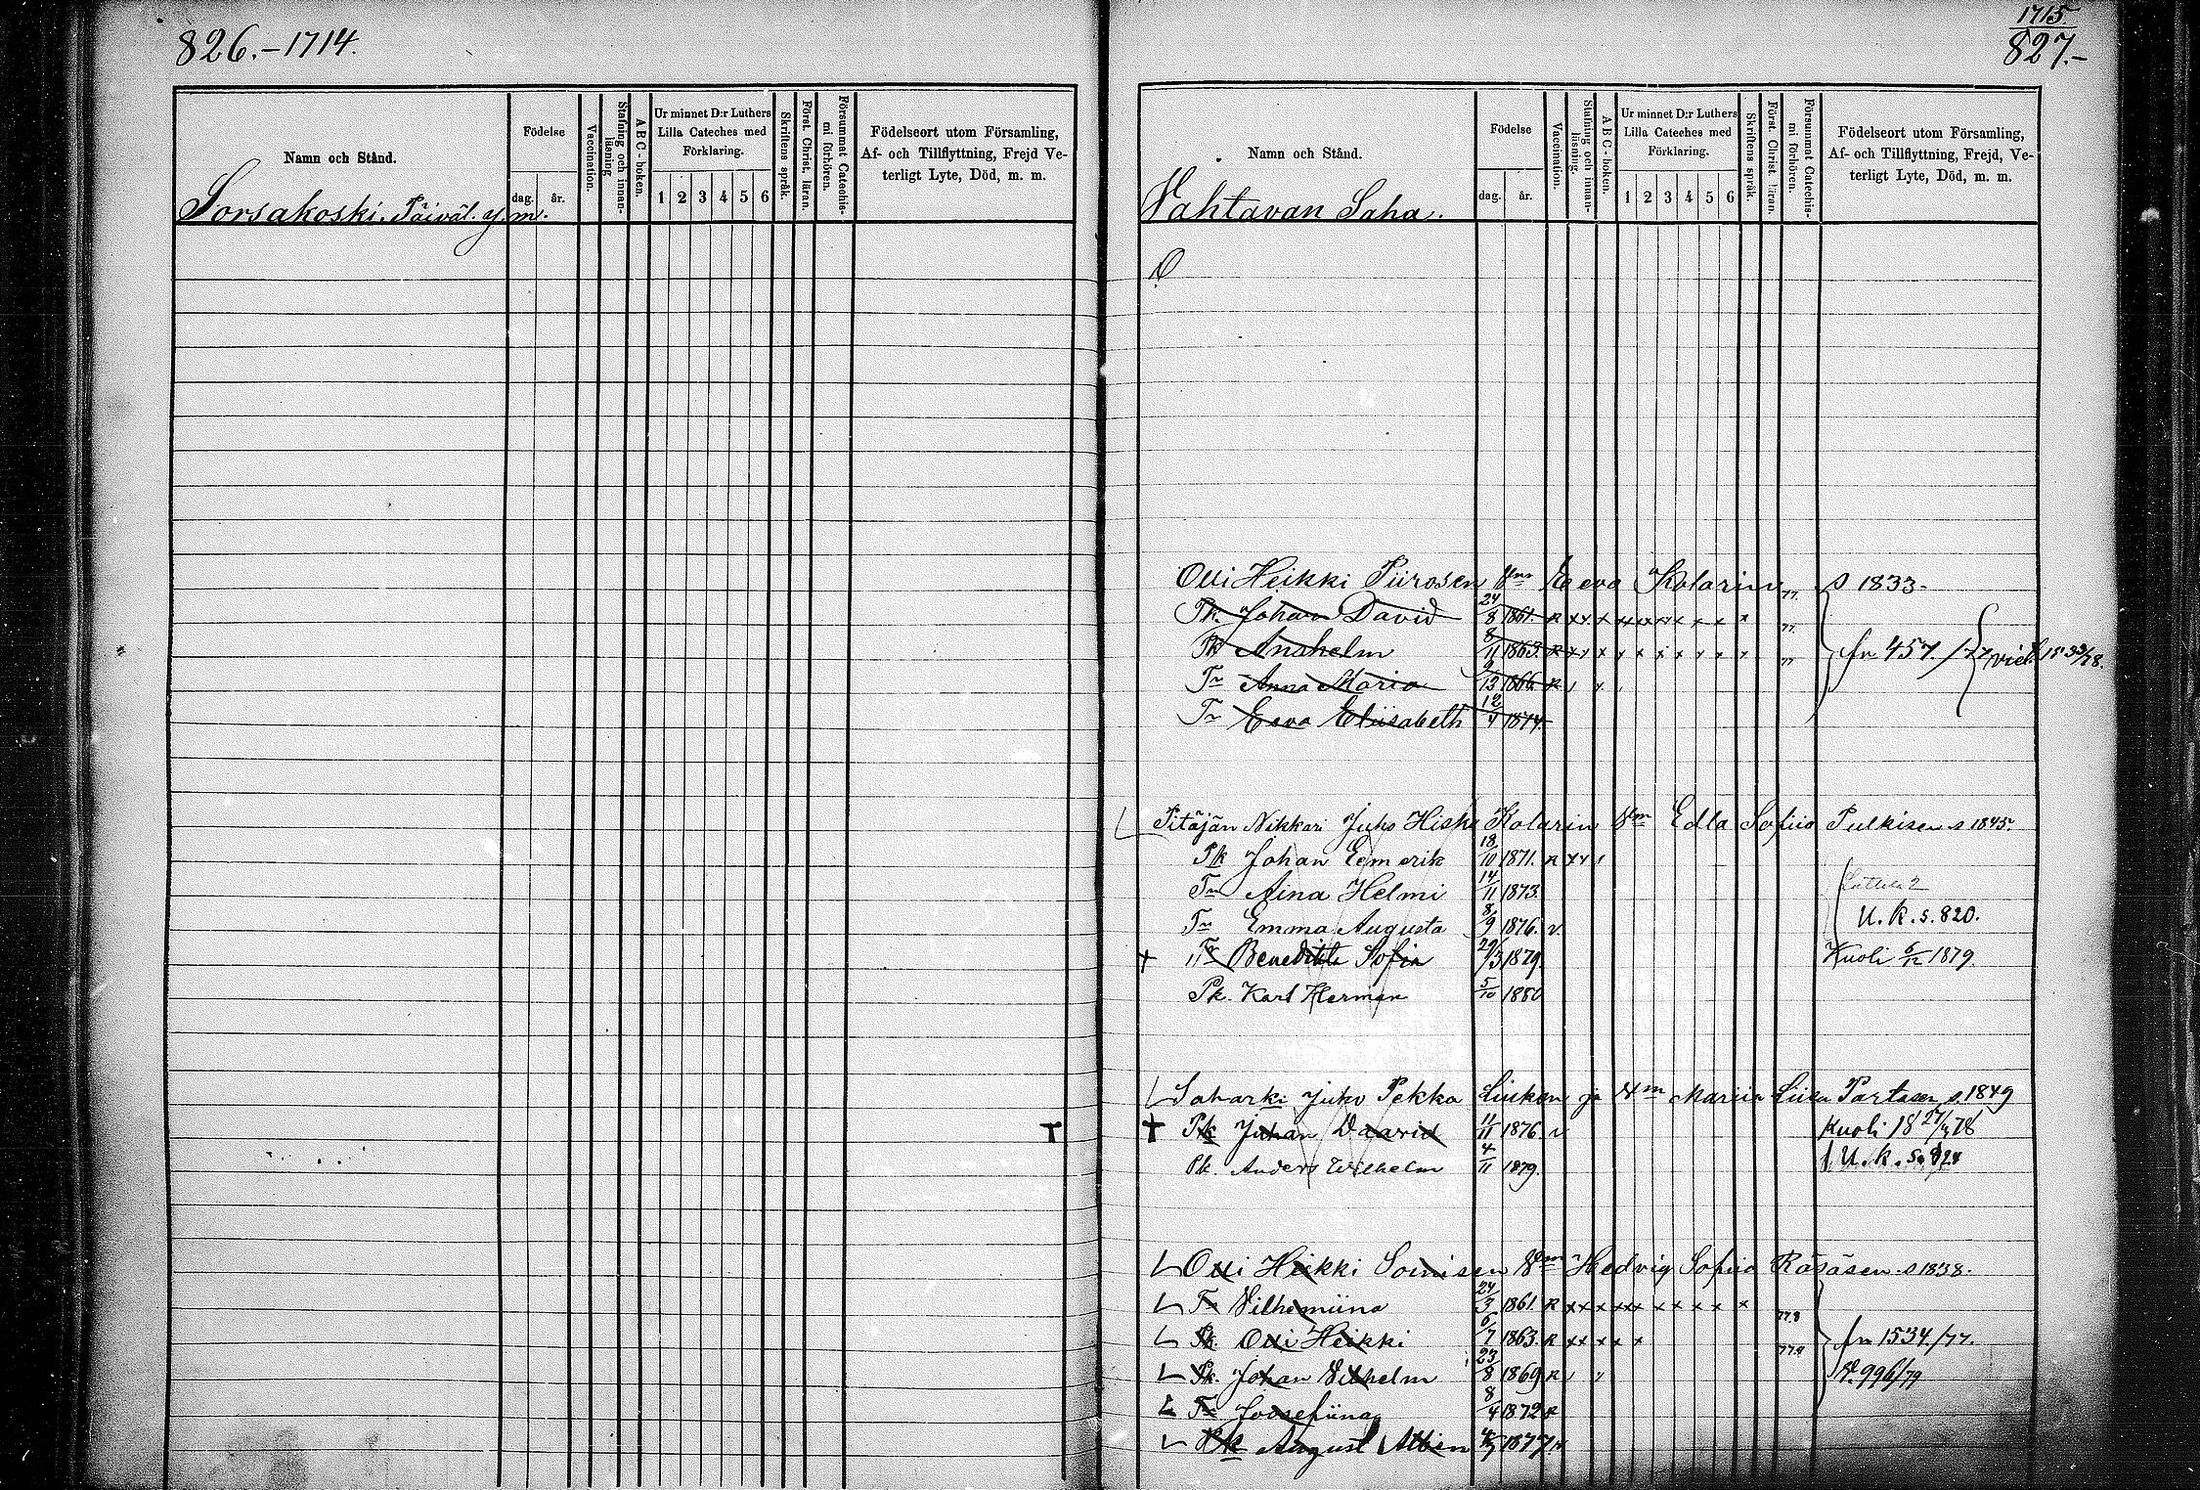 826.-1714.
Namn och Stånd.
Födelse
dag. år.
Vaccination.
Stafning och innan-läsning
A B C - boken.
Ur minnet D:r Luthers
Lilla Cateches med
Förklaring.
1 2 3 4 5 6
Skriftens språk.
Först. Christ. läran.
Försummat Catechis-mi förhören.
Födelseort utom Församling,
Af- och Tillflyttning, Frejd Ve-
terligt Lyte, Död, m. m.
Sorsakoski. Päiväl. y m.
1715.
827.-
Namn och Stånd.
Födelse
dag. år.
Vaccination.
Stafning och innan-läsning.
A B C - boken.
Ur minnet D:r Luthers
Lilla Cateches med
Förklaring.
1 2 3 4 5 6
Skriftens språk.
Först. Christ. läran.
Försummat Catechis-mi förhören.
Födelseort utom Församling,
Af- och Tillflyttning, Frejd, Ve-
terligt Lyte, Död, m. m.
Vahtavan Saha.
Olli Heikki Piirosen Vm Eeva Kolarin s 1833.
Pk. Johan David 24/8 1861. R
Pk Anshelm 8/11 1863. R
Tr Anna Maria 1866 R fr 457./77
Tr Eeva Eliisabeth 12/4 1874.
Pitäjän Nikkari Juho Kolarin Vm Edla Sofiia Pulkisen s 1845.
Pk Johan Eemerik 18/10 1871. R
Tr Aina Helmi 14/11 1873.
Tr Emma Augusta 8/9 1876. v. U.K.s.820.
† Tr Benedikta Sofia 29/3 1879. Kuoli 6/12 1879.
Pk. Karl Herman 5/10 1880
Juho Pekka Liukon ja Vm Mariia Liisa Partasen s. 1849
† † Pk Juhan Daavid 4/11 1876. v Kuoli 18 27/4 78
Pk. Anders Wilhelm 4/11 1879. U.k.s. 824
Olli Heikki Soinisen Vm Hedvig Sofiia Räsäsen. s 1838.
Tr Vilhemiina 24/3 1861. R
Pk. Olli Heikki 6/7 1863. R fr 1534./77.
Pk. Johan Vilhelm 23/8 1869 R V. 996/79
Tr Joosefiina 8/4 1872 R
Pk August Albin 1877